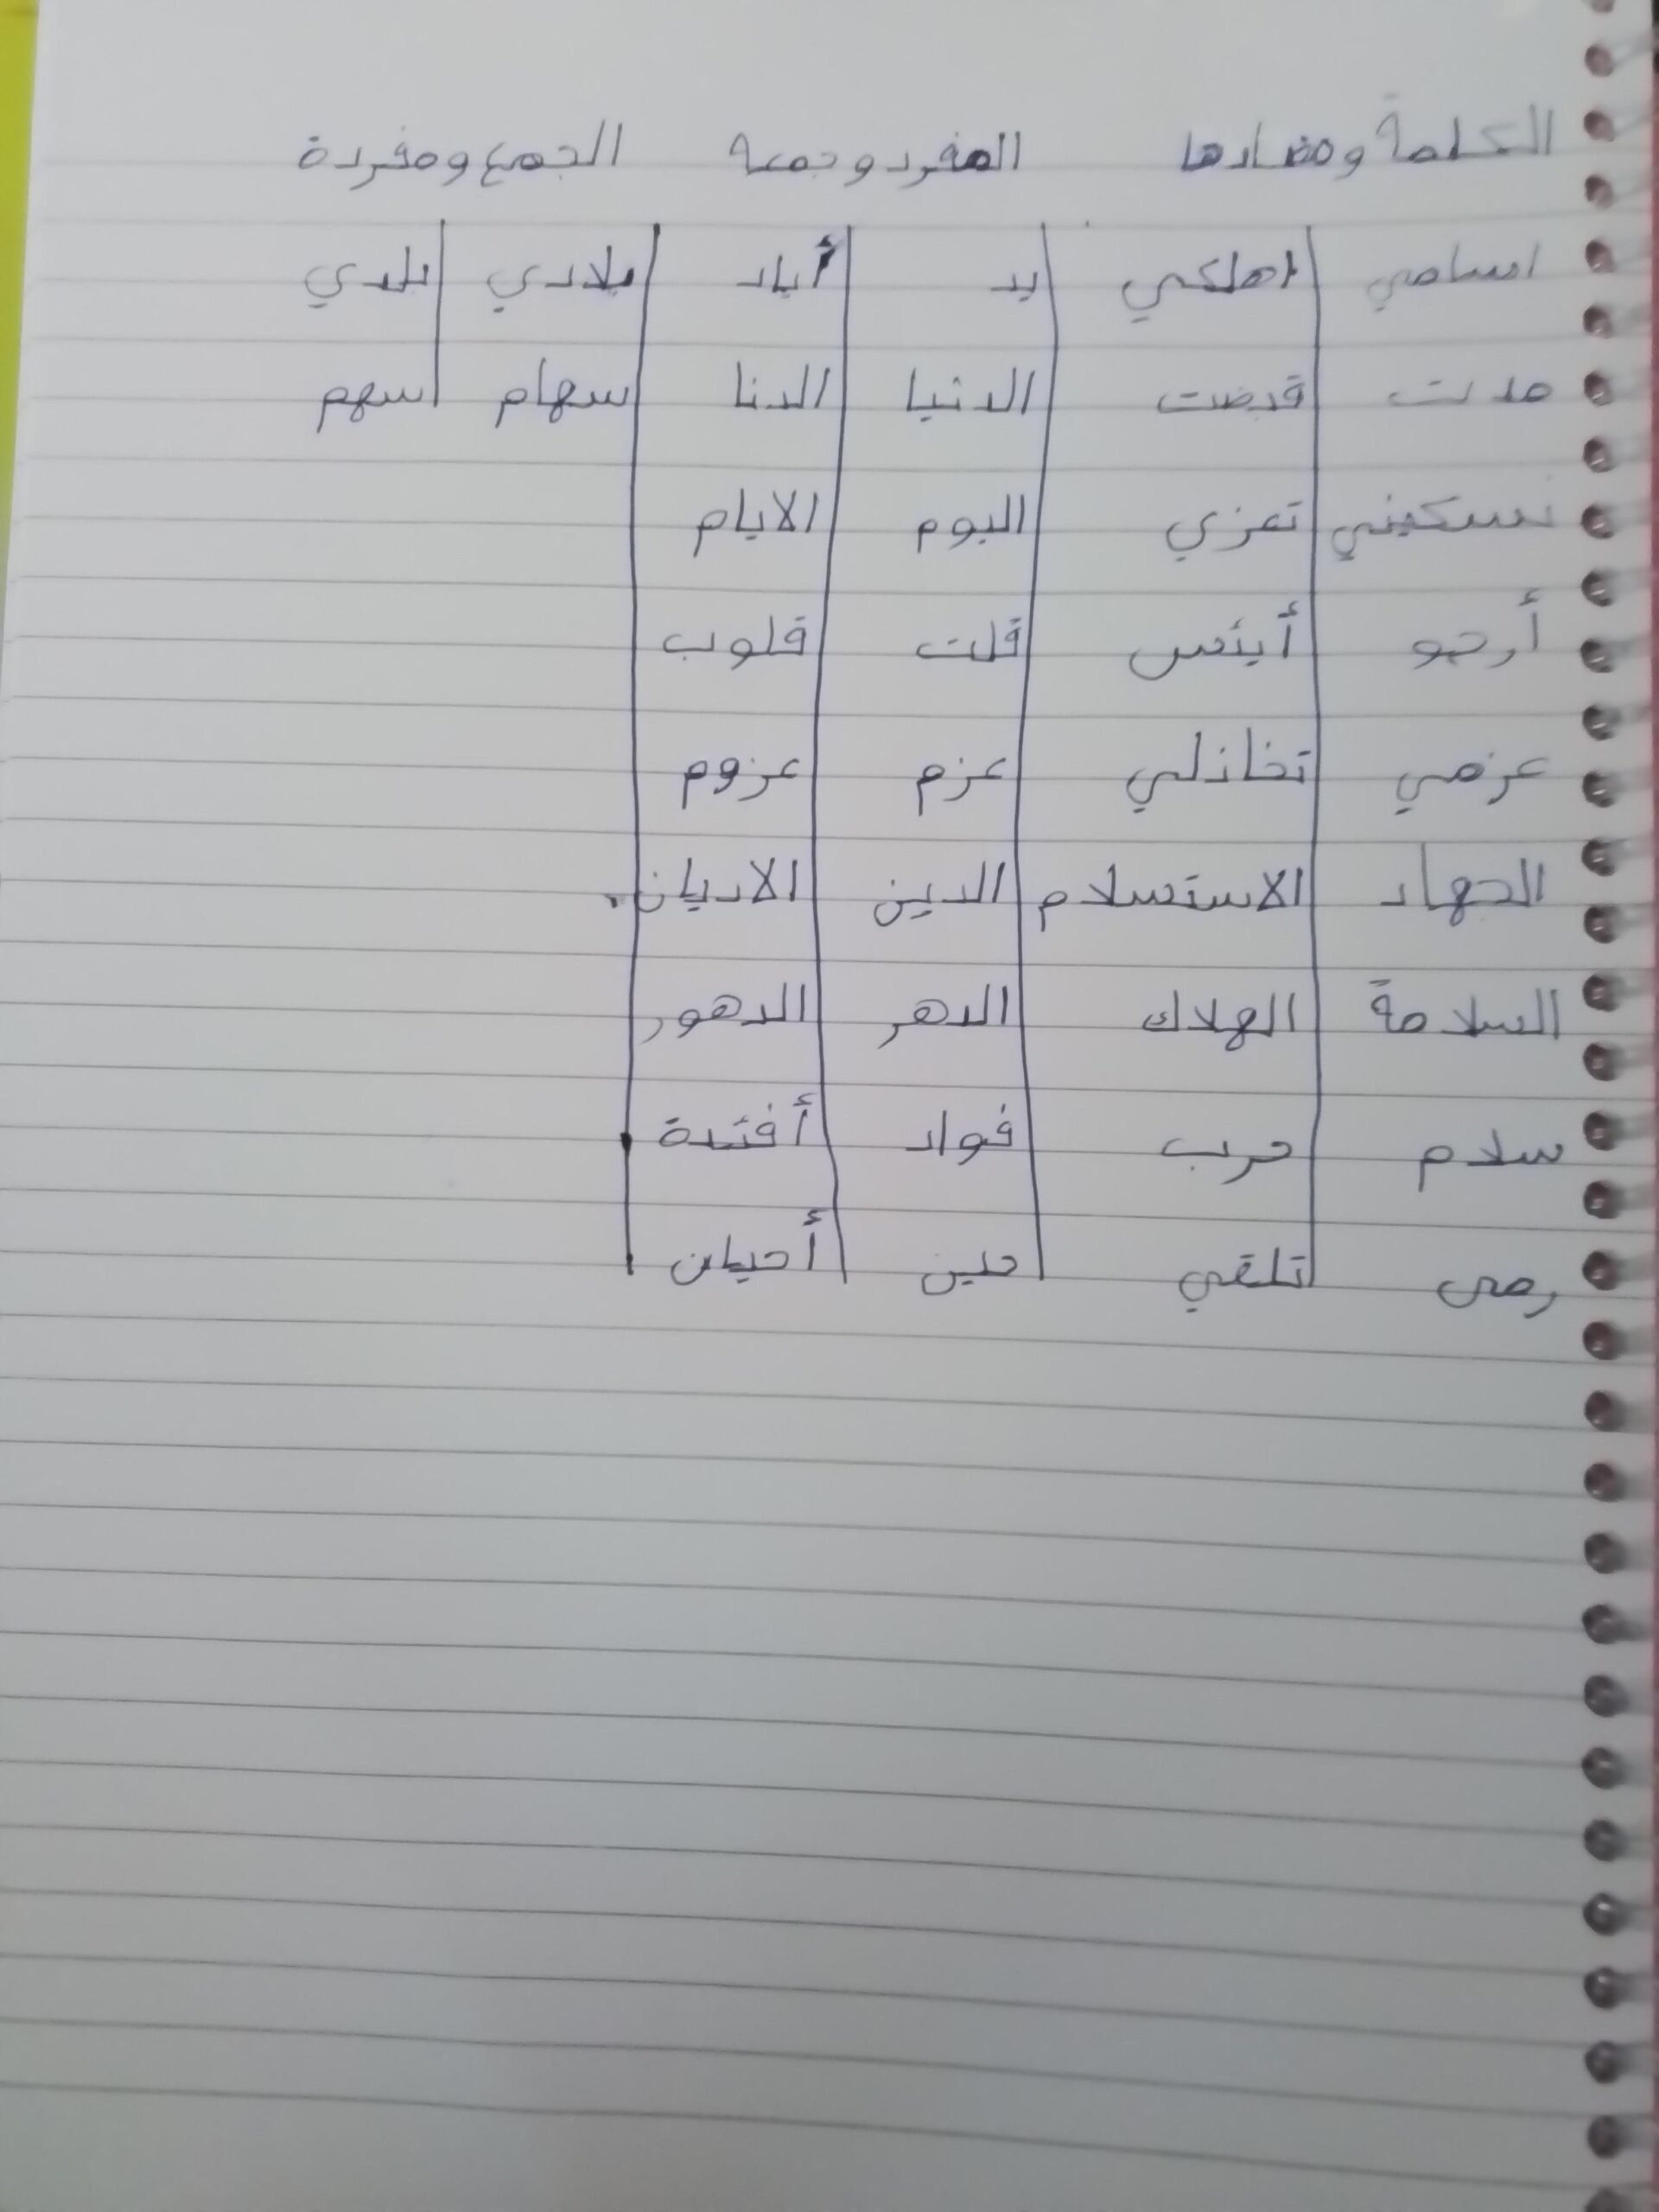 الكلمة ومضادها المفرد وجمعه الجمع ومفردة
اسلمي اهلكي يد أياد بلادي بلدي
مدت قبضت الدنيا الدنا سهام سهم
تستكيني تعزي اليوم الايام
أرجو أيئس قلب قلوب
عزمي تخاذلي عزم عزوم
الجهاد الاستسلام الدين الاديان
السلامة الهلاك الدهر الدهور
سلام حرب فواد أفئدة
رمى تلقي حين أحيان